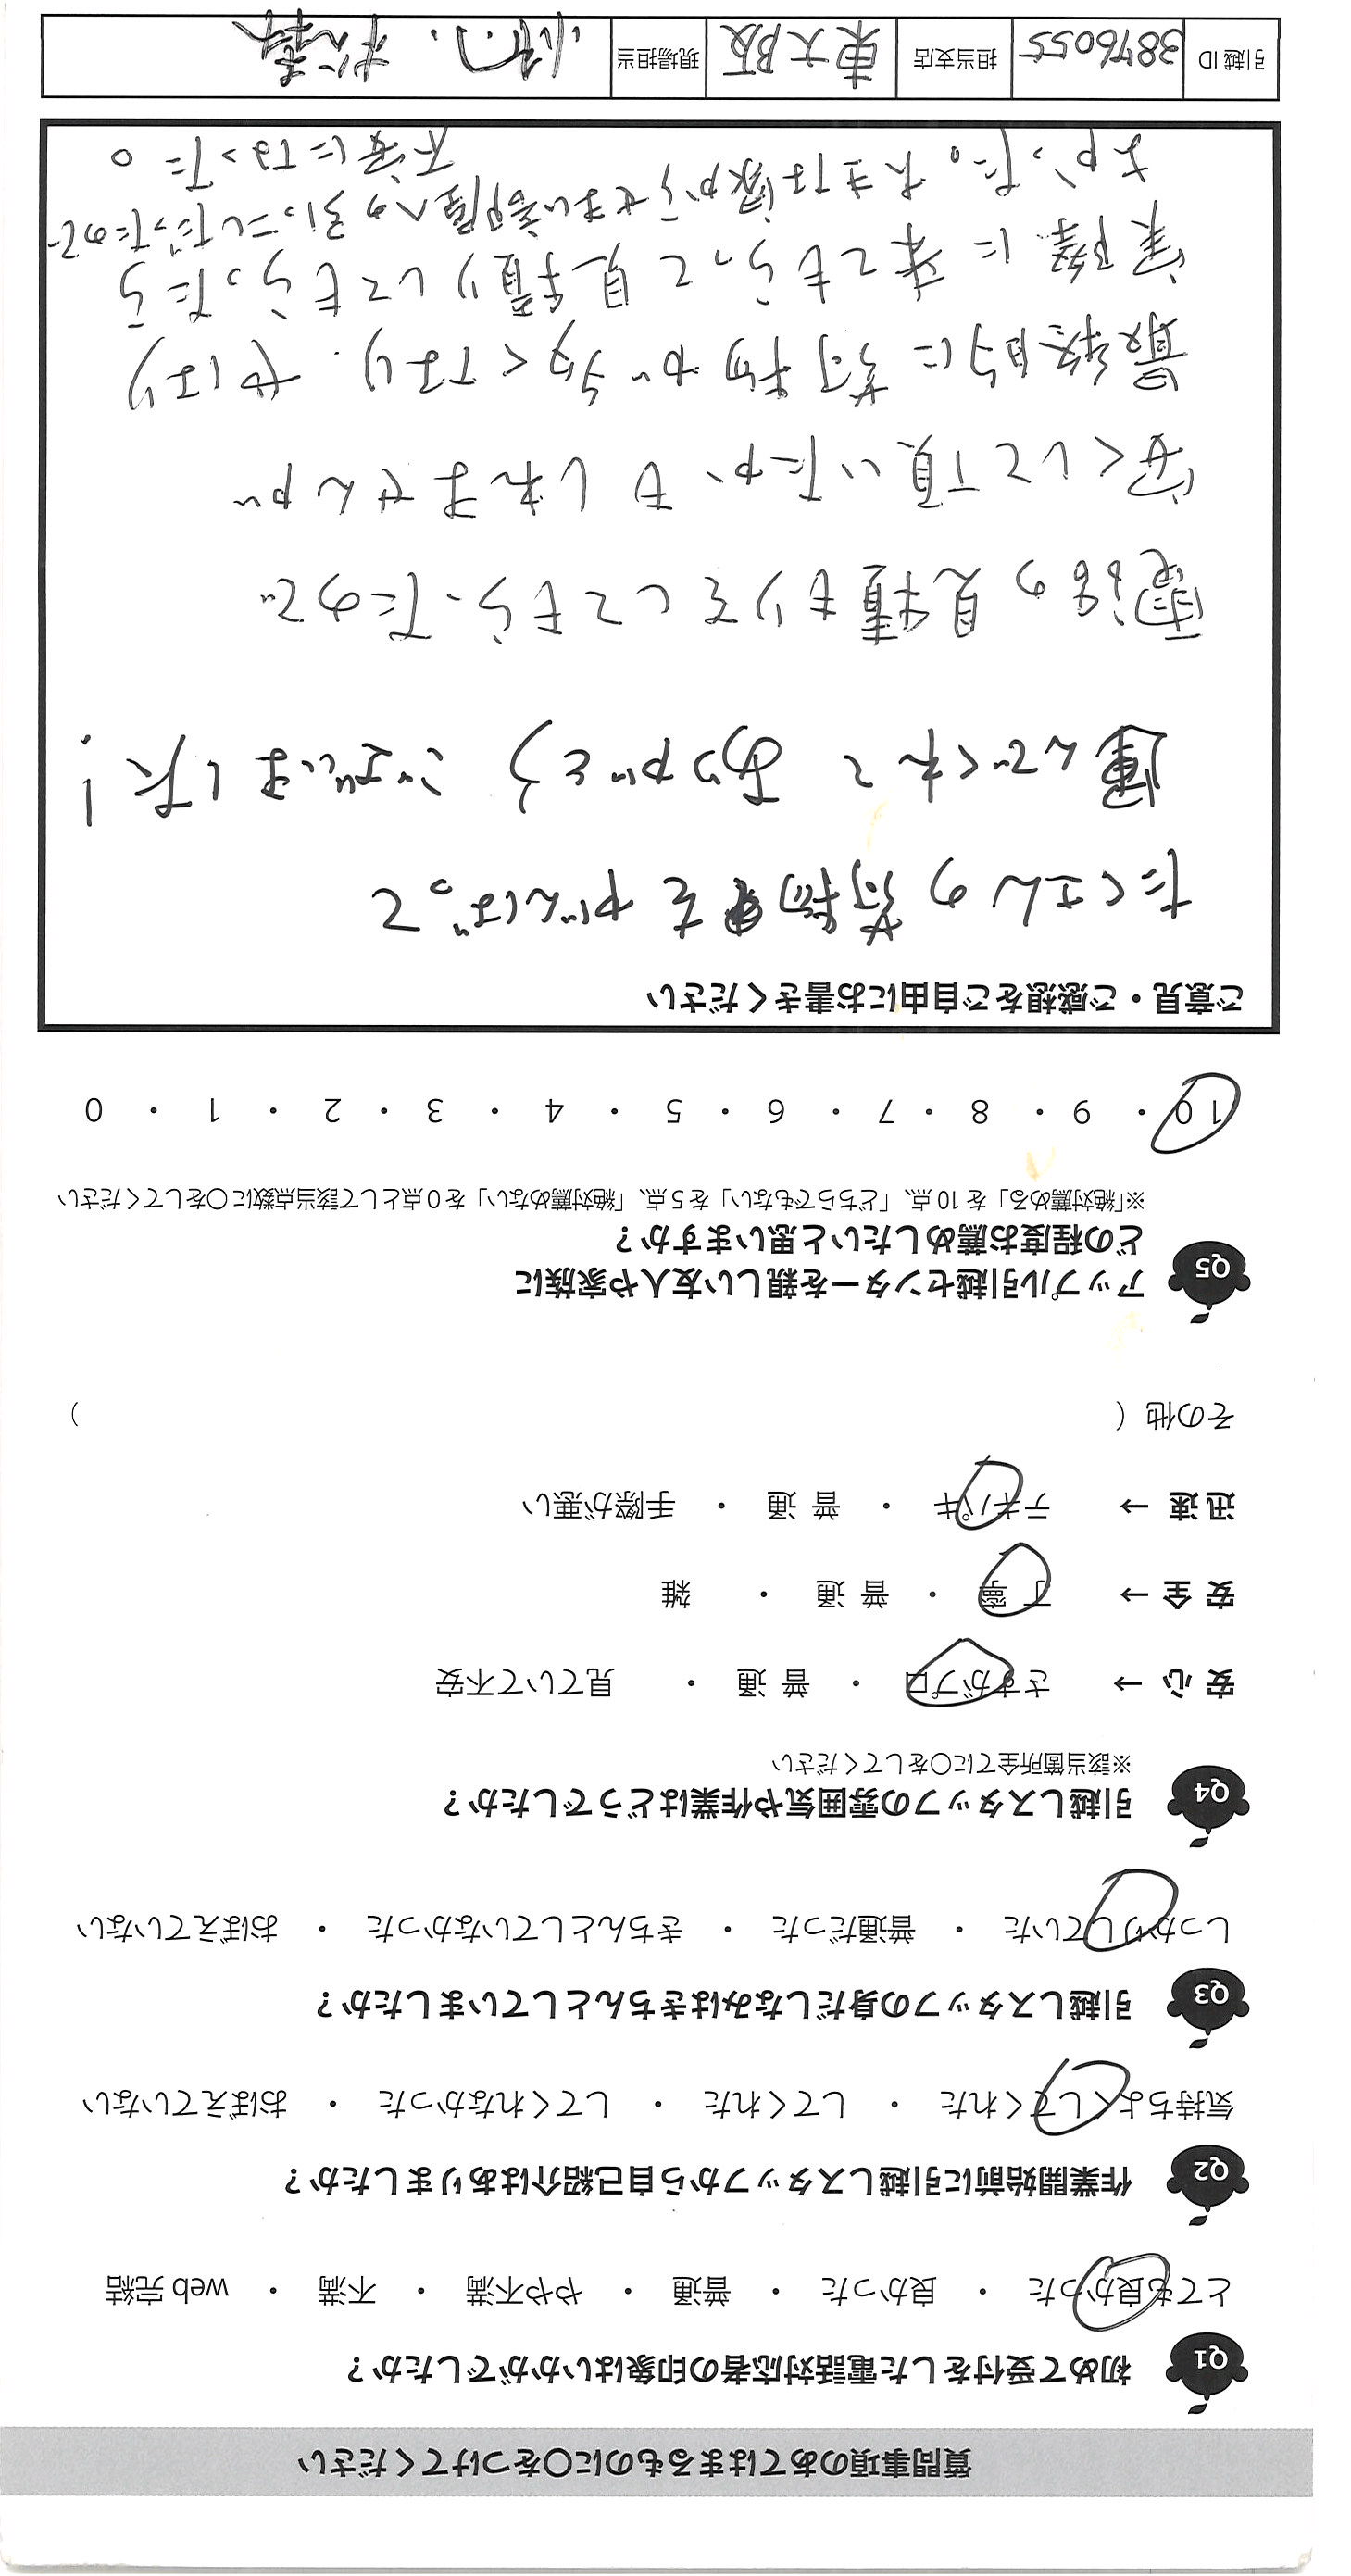 質問事項のあてはまるものに○をつけてください
Q1 初めて受付をした電話対応者の印象はいかがでしたか？
とても良かった ・ 良かった ・ 普通 ・ やや不満 ・ 不満 ・ web 完結
Q2 作業開始前に引越しスタッフから自己紹介はありましたか？
気持ちよくしてくれた ・ してくれた ・ してくれなかった ・ おぼえていない
Q3 引越しスタッフの身だしなみはきちんとしていましたか？
しっかりしていた ・ 普通だった ・ きちんとしていなかった ・ おぼえていない
Q4 引越しスタッフの雰囲気や作業はどうでしたか？
※該当箇所全てに○をしてください
安 心 → さすがプロ ・ 普 通 ・ 見ていて不安
安 全 → 丁 寧 ・ 普 通 ・ 雑
迅 速 → テキパキ ・ 普 通 ・ 手際が悪い
その他（ ）
Q5 アップル引越センターを親しい友人や家族に
どの程度お薦めしたいと思いますか？
※「絶対薦める」を 10 点、「どちらでもない」を 5 点、「絶対薦めない」を 0 点として該当点数に○をしてください
10 ・ 9 ・ 8 ・ 7 ・ 6 ・ 5 ・ 4 ・ 3 ・ 2 ・ 1 ・ 0
ご意見・ご感想をご自由にお書きください
たくさんの荷物をがんばって
運んでくれて ありがとうございました！
電話の見積もりをしてもらったので
安くして頂いたかもしれませんが
最終的に荷物が多くなり、やはり
実際に来てもらって見積りしてもらったら
よかった。大きな家からせまい部屋への引っこしだったので
不安になった。
引越 ID 3876055 担当支店 東大阪 現場担当